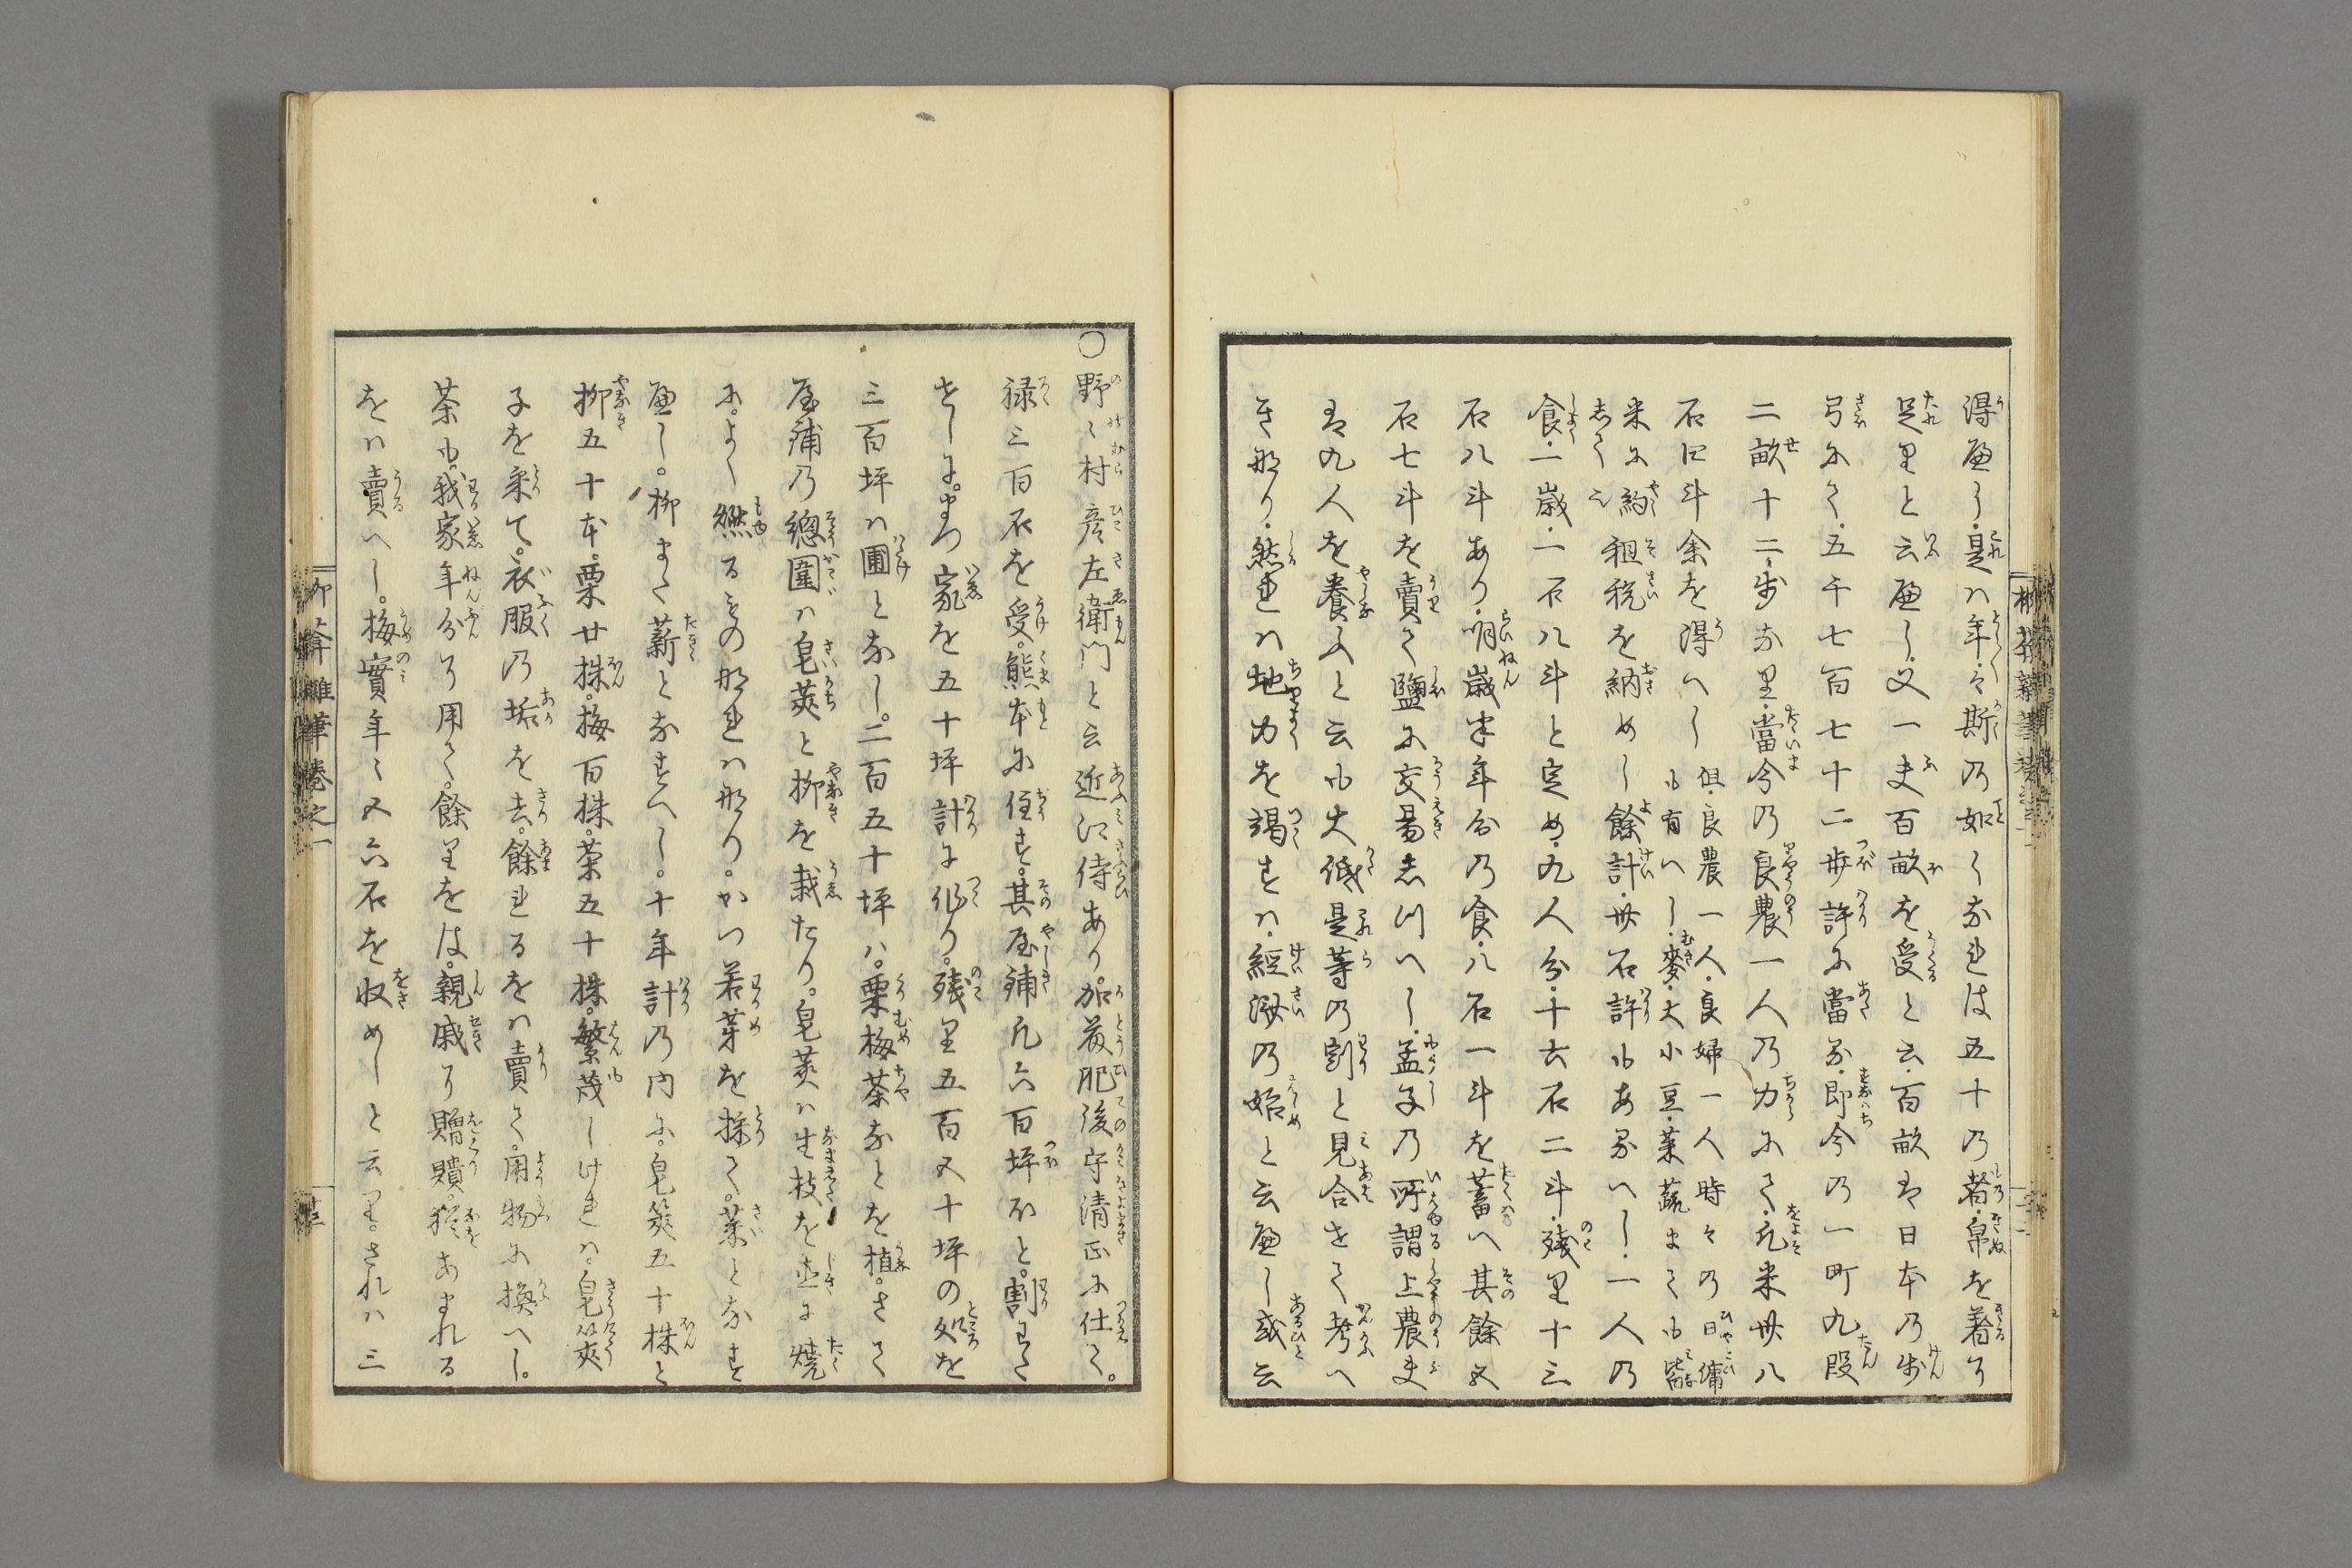 得へし是ハ年々斯の如くなれは五十の者帛を着るに
足りと云へし又一夫百畝を受と云百畝は日本の歩
弓にて五千七百七十二歩許に當る即今の一町九段
二畝十二歩なり當今の良農一人の力にて凡米廿八
石四斗余を得へし但良農一人良婦一人時々の日傭
も有へし麥大小豆菜蔬まても皆
米に約して租税を納めし餘計廿石許もあるへし一人の
食一歳一石八斗と定め九人分十六石二斗残り十三
石八斗あり明歳半年分の食八石一斗を蓄へ其餘五
石七斗を賣て鹽に交易しつへし孟子の所謂上農夫
は九人を養ふと云も大低是等の割と見合せて考へ
き也然れハ地力を竭すハ經濟の始と云へし或云
○野々村彦左衛門と云近江侍あり加藤肥後守清正に仕て
禄三百石を受熊本に住す其屋鋪凡六百坪ほと割渡
せしにまつ家を五十坪計に作り残り五百五十坪の処を
三百坪ハ圃となし二百五十坪ハ栗梅茶なとを植さて
屋鋪の總圍ハ皂莢と柳を栽たり皂莢ハ生枝を直に燒
によく燃るもの也かつ若芽を採て菜となす
へし柳また薪となすへし十年計の内に皂莢五十株と
柳五十本栗廿株梅百株茶五十株繁茂しけれハ皂莢
子を采て衣服の垢を去餘れるをハ賣て用物に換へし
茶も我家年分に用て餘りをは親戚に贈り猶あまれる
をハ賣へし梅實年々五六石を收めしと云りされハ三
柳葊雜筆卷之一